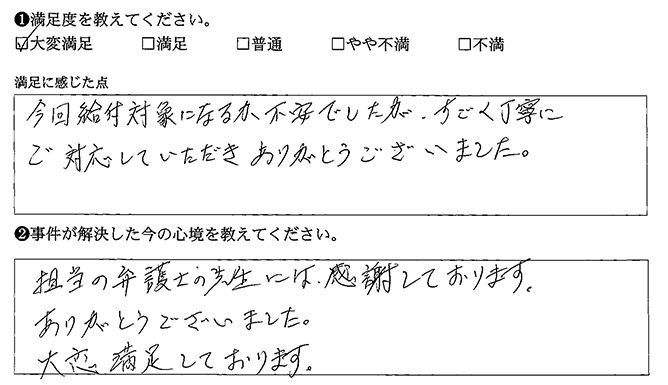 ❶満足度を教えてください。
☑大変満足 □満足 □普通 □やや不満 □不満
満足に感じた点
今回給付対象になるか、不安でしたが、すごく丁寧に
ご対応していただきありがとうございました。
❷事件が解決した今の心境を教えてください。
担当の弁護士の先生には、感謝しております。
ありがとうございました。
大恋満足しております。